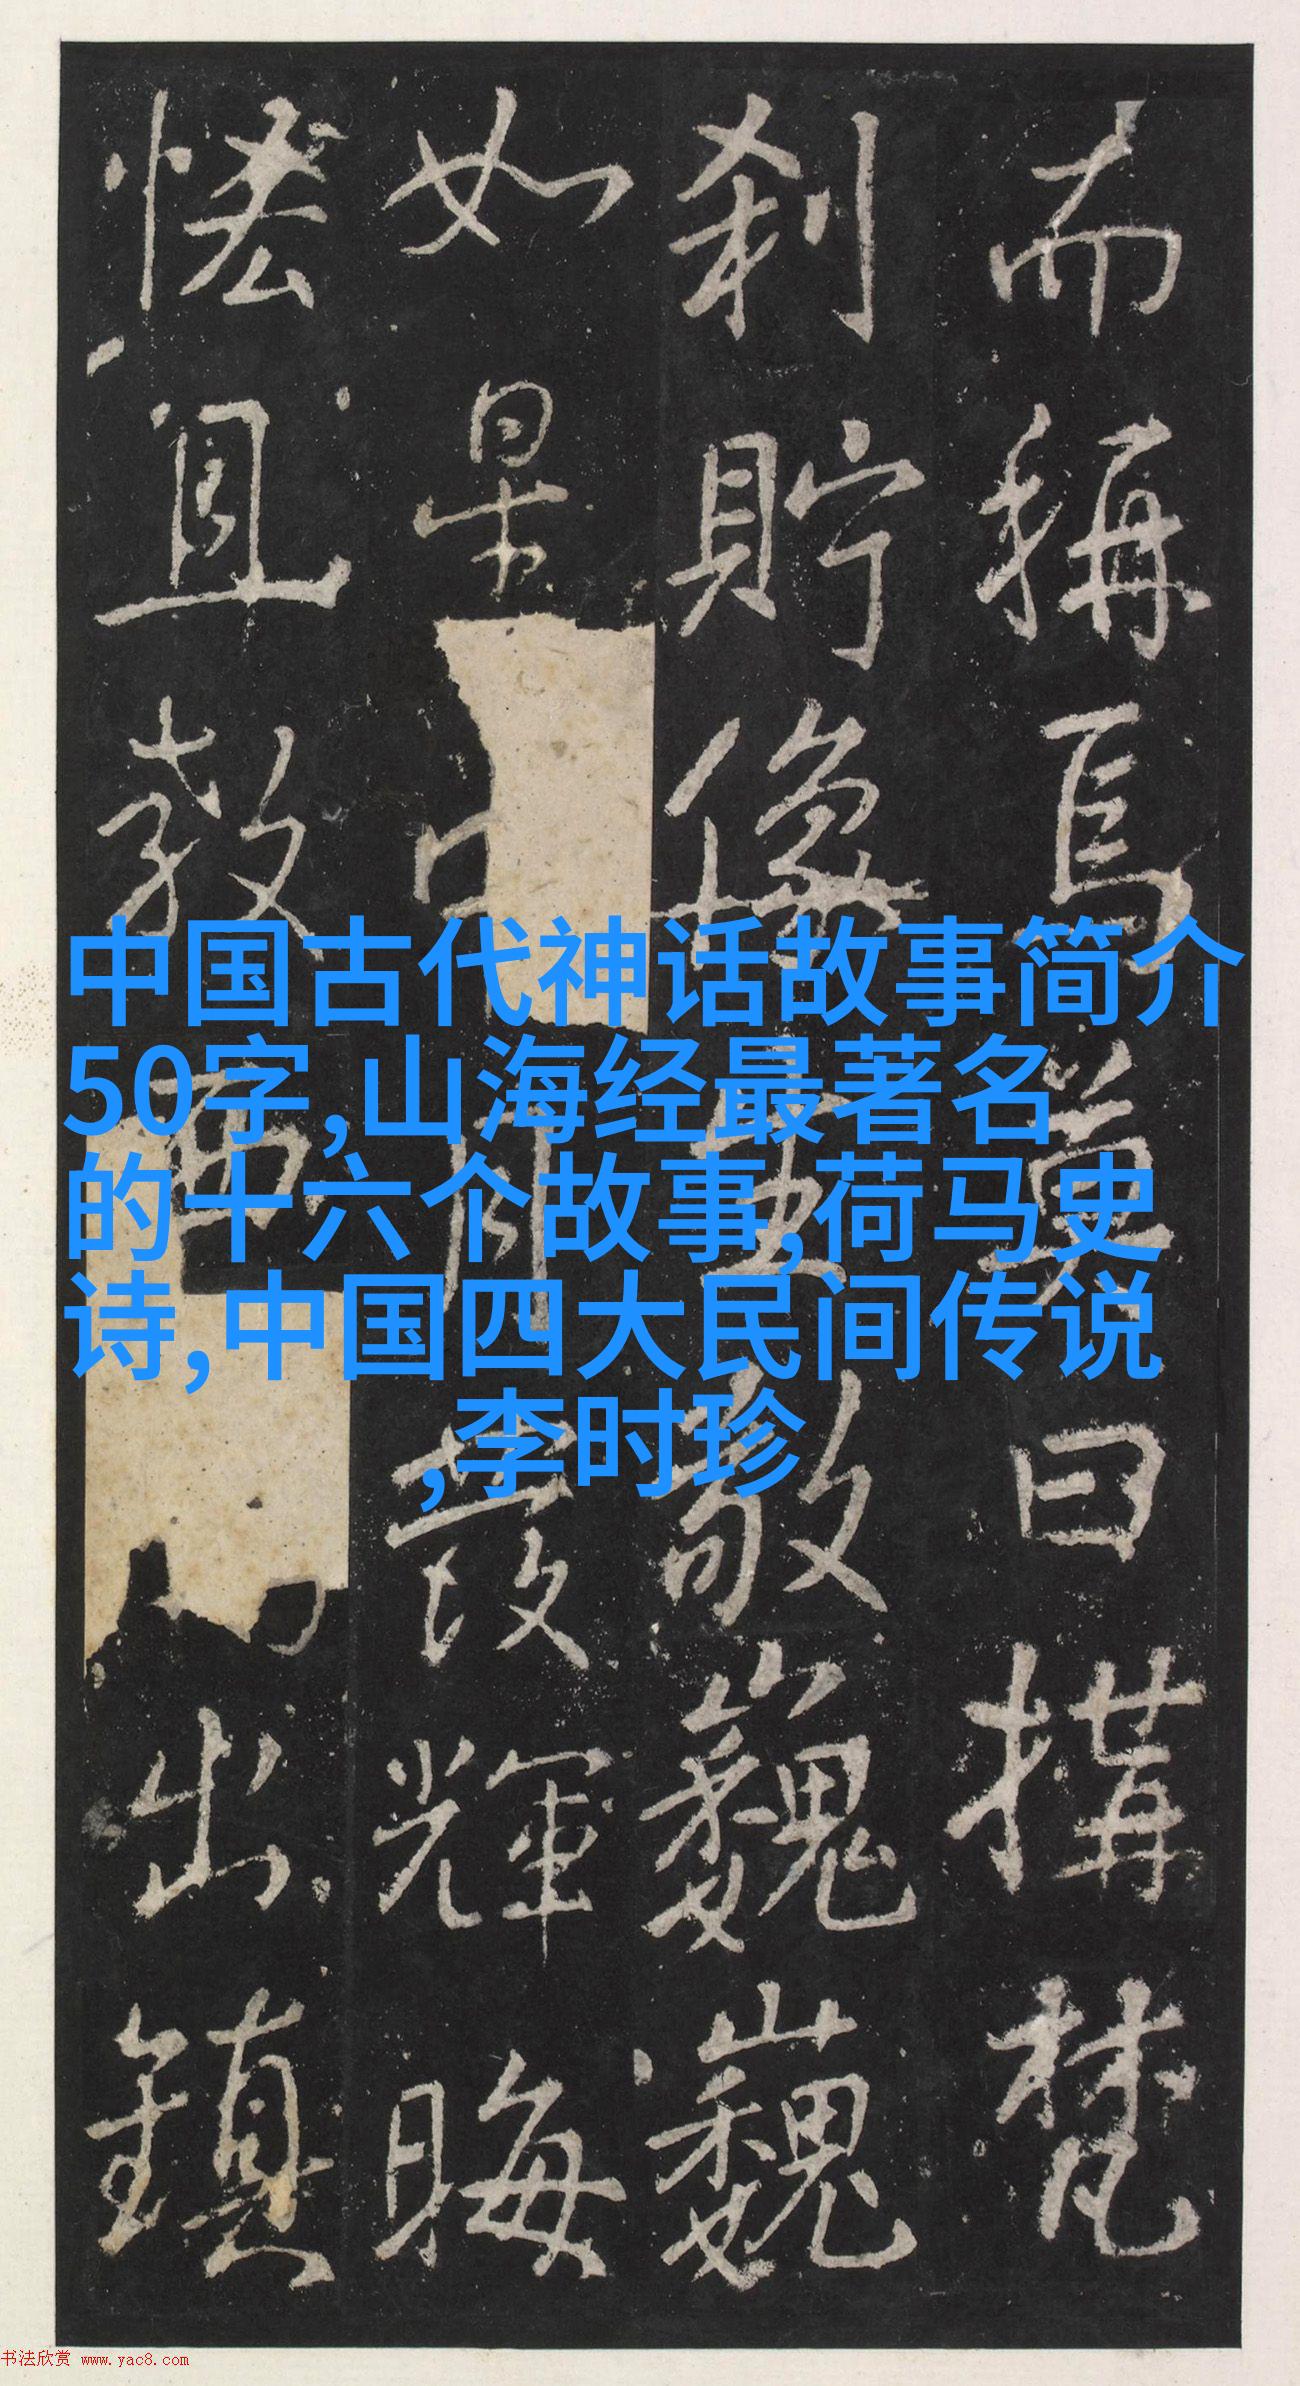 而稱焉曰搆梵
刹貯像敞巍巍
如發輝晦
且教出鎮
中国古代神话故事简介
50字,山海经最著名
的十六个故事,荷马史
诗,中国四大民间传说
,李时珍
书法欣赏 www.yac8.com